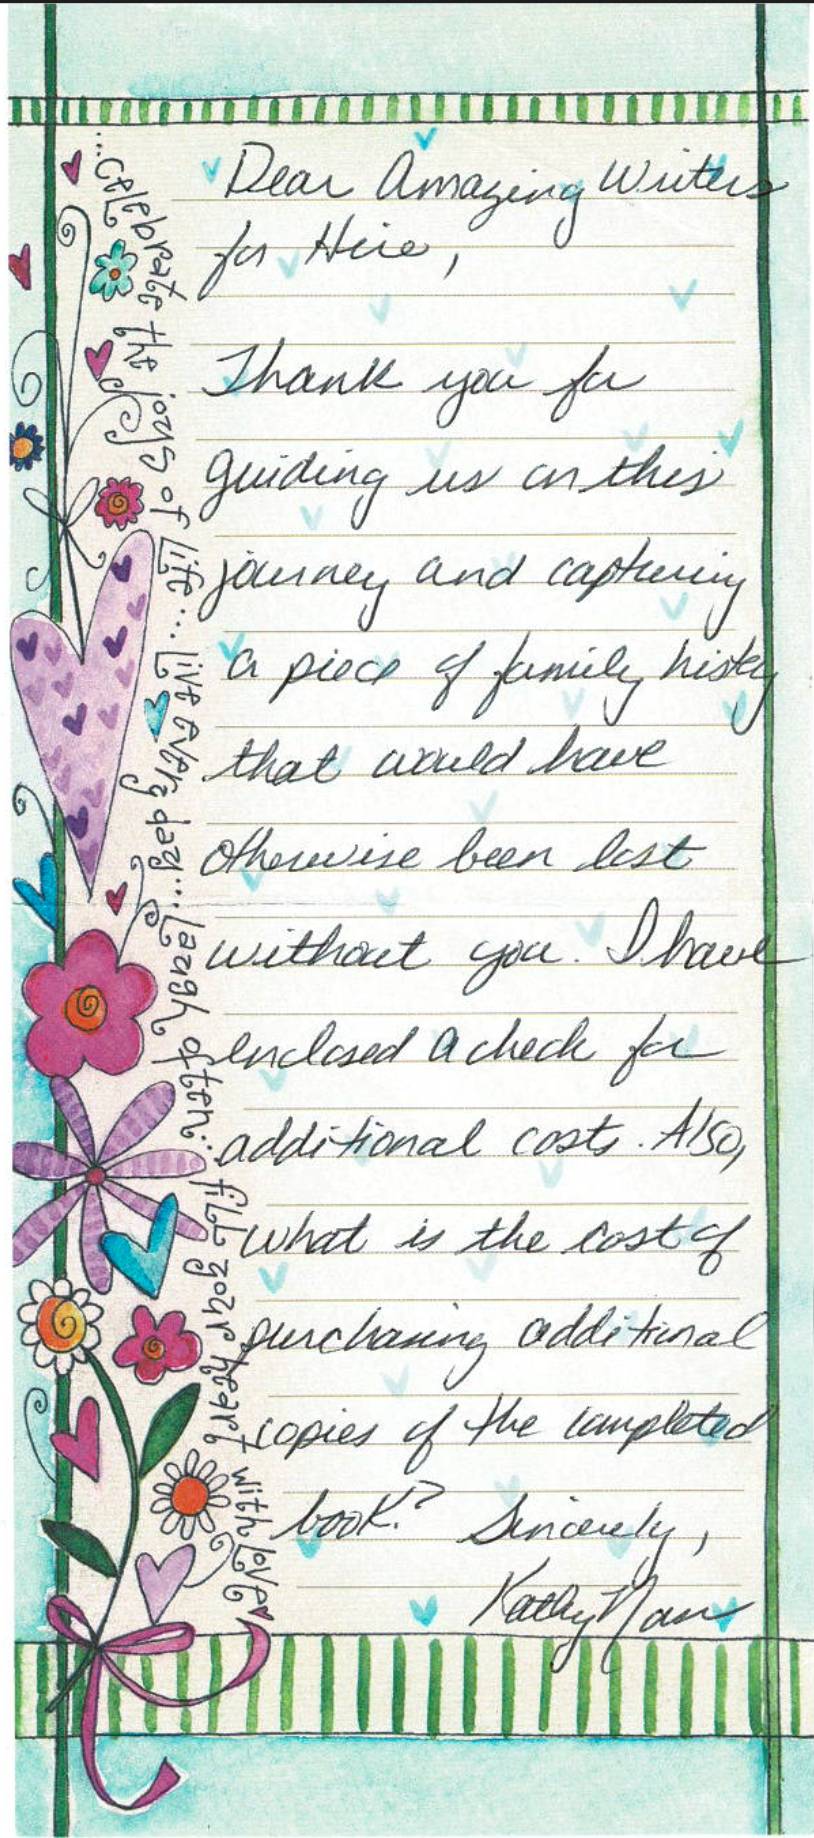 Dear Amazing Writers
for Hire,
Thank you for
guiding us on this
journey and capturing
a piece of family history
that would have
otherwise been lost
without you. I have
enclosed a check for
additional costs. Also,
what is the cost of
purchasing additional
copies of the completed
book? Sincerely,
Kathy
...celebrate the joys of life... live every day... laugh often... fill your heart with love